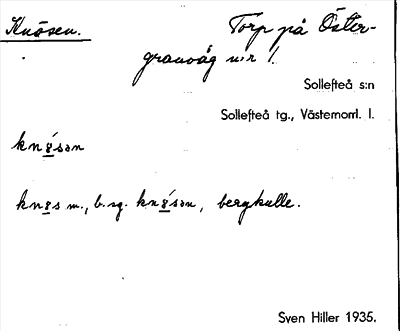 Knösen.
Torp på Öster-
granvåg n:r 1.
Sollefteå s:n
Sollefteå tg., Västernorrl. l.
knö́sən
knös m., b. sg. knö́sən, bergkulle.
Sven Hiller 1935.